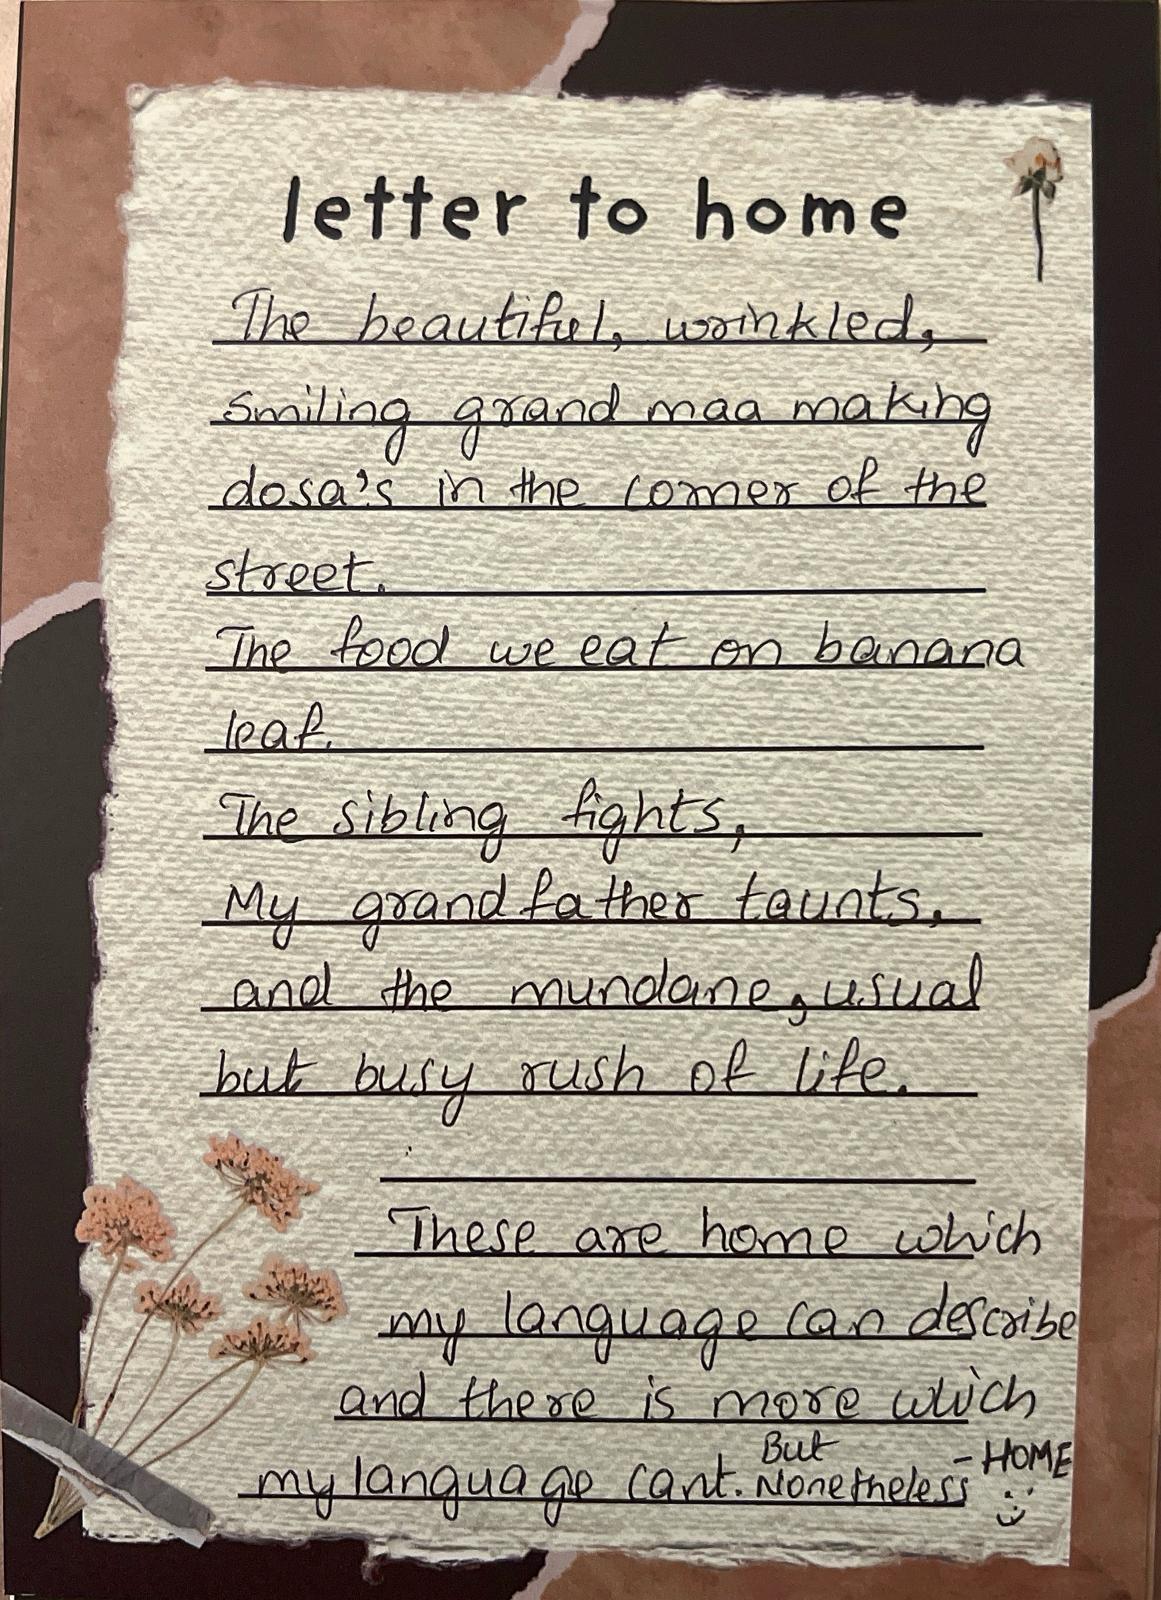 letter to home
The beautiful, wrinkled,
smiling grand maa making
dosa's in the corner of the
street.
The food we eat on banana
leaf.
The sibling fights,
My grandfather taunts,
and the mundane, usual
but busy rush of life.
These are home which
my language can describe
and there is more which
But
my language cant. Nonetheless - HOME